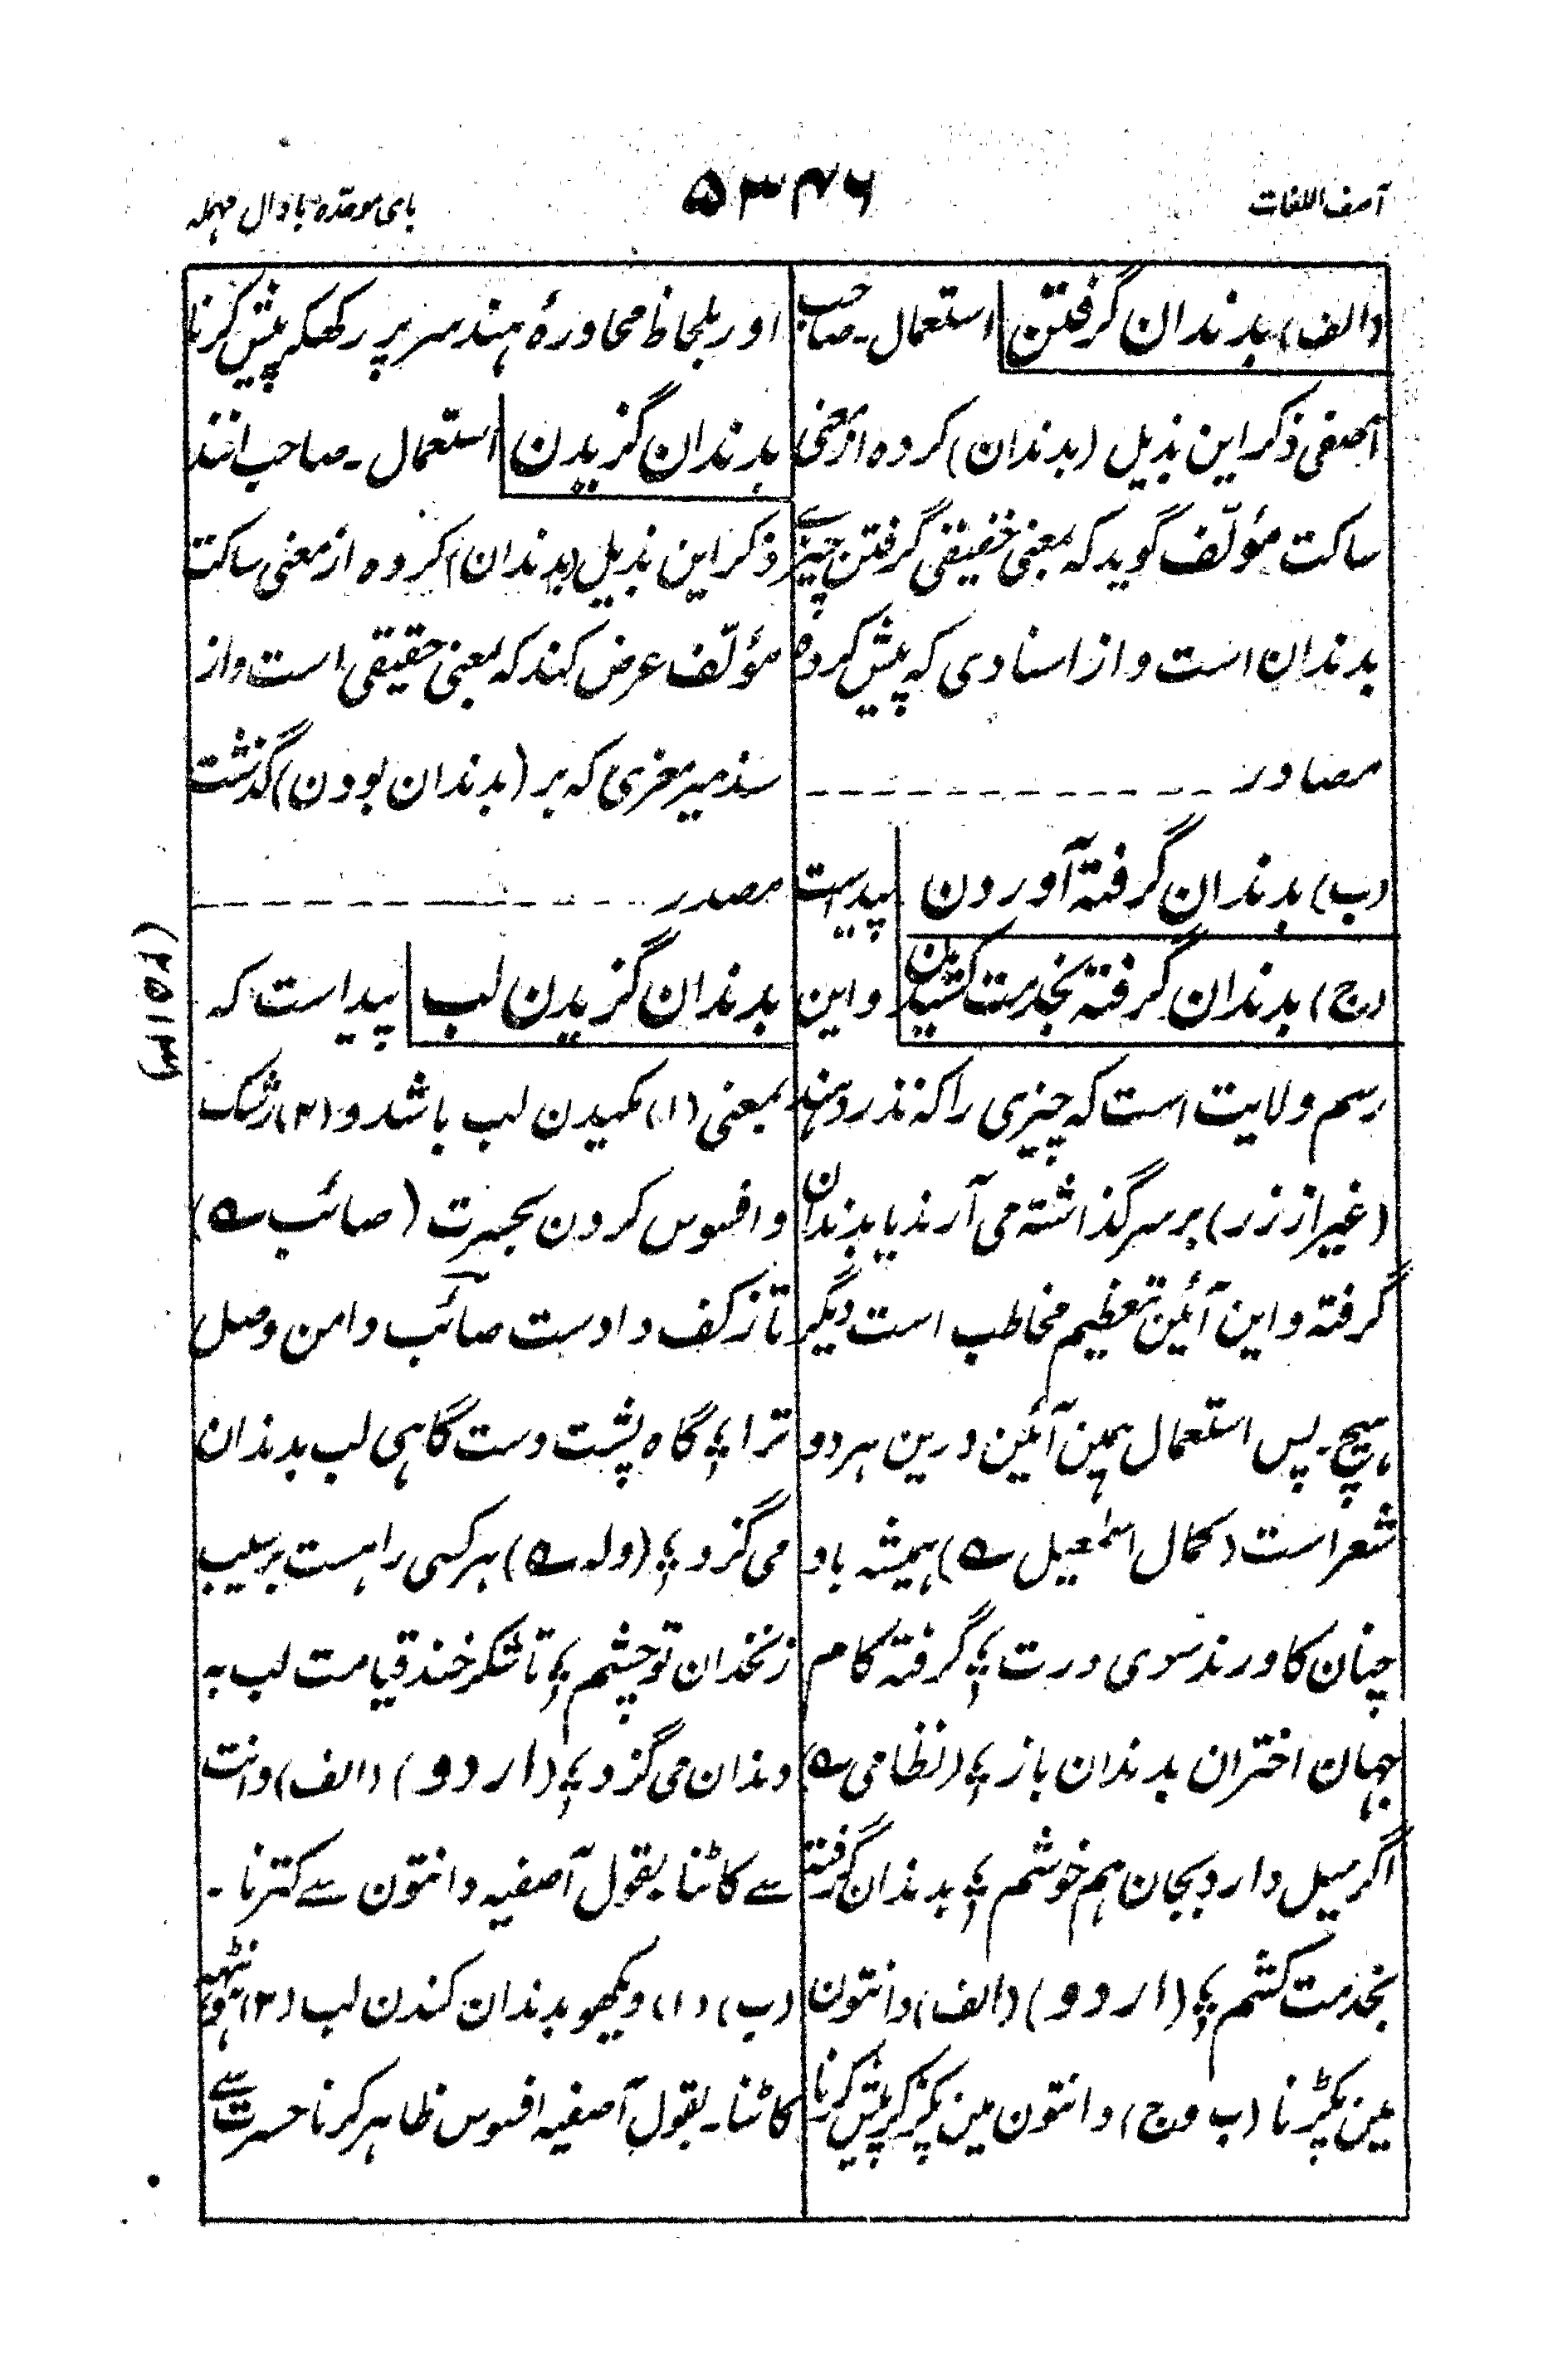 آصف اللغات
۵۳۴۶
بای موحده با دال مهمله
(الف) بدندان گرفتن استعمال ۔ صاحب
آصفی ذکر این بذیل (بدندان) کرده از معنی
ساکت مؤلّف گوید که بمعنی حقیقی گرفتن چیزے
بدندان است و از اسنادی که پیش کرده
مصادر
(ب) بدندان گرفته آوردن پیداست
(ج) بدندان گرفته بخدمت کشیدن و این
رسم ولایت است که چیزی را که نذر دهند
(غیر از زر) بر سر گذاشته می آرند یا بدندان
گرفته و این آئین تعظیم مخاطب است دیگر
هیچ ۔ پس استعمال همین آئین درین هر دو
شعر است (کمال اسمٰعیل ؎) همیشه باد
چنان کاورند سوی درت ؛ گرفته کام
جهان اختران بدندان باز ؛ (نظامی ؎)
اگر میل دارد بجان هم خوشم ؛ بدندان گرفته
بخدمت کشم ؛ (اردو) (الف) دانتون
مین پکڑنا (ب و ج) دانتون مین پکڑ کر پیش کرنا
اور بلحاظ محاورهٔ هند سر پر رکھکر پیش کرنا
بدندان گزیدن استعمال ۔ صاحب انند
ذکر این بذیل (بدندان) کرده از معنی ساکت
مؤلّف عرض کند که بمعنی حقیقی است و از
سند میر معزی که بر (بدندان بودن) گذشت
مصدر
بدندان گزیدن لب پیداست که
بمعنی (۱) مکیدن لب باشد و (۲) رشک
و افسوس کردن بحسرت (صائب ؎)
تا ز کف دادست صائب دامن وصل
ترا ؛ گاه پشت دست گاهی لب بدندان
می گزد ؛ (وله ؎) هر کسی را هست بر سیب
زنخدان تو چشم ؛ تا شکر خند قیامت لب به
دندان می گزد ؛ (اردو) (الف) دانت
سے کاٹنا بقول آصفیه دانتون سے کترنا ۔
(ب) (۱) دیکھو بدندان کندن لب (۲) هونٹهه
کاٹنا ۔ بقول آصفیه افسوس ظاهر کرنا حسرت سے